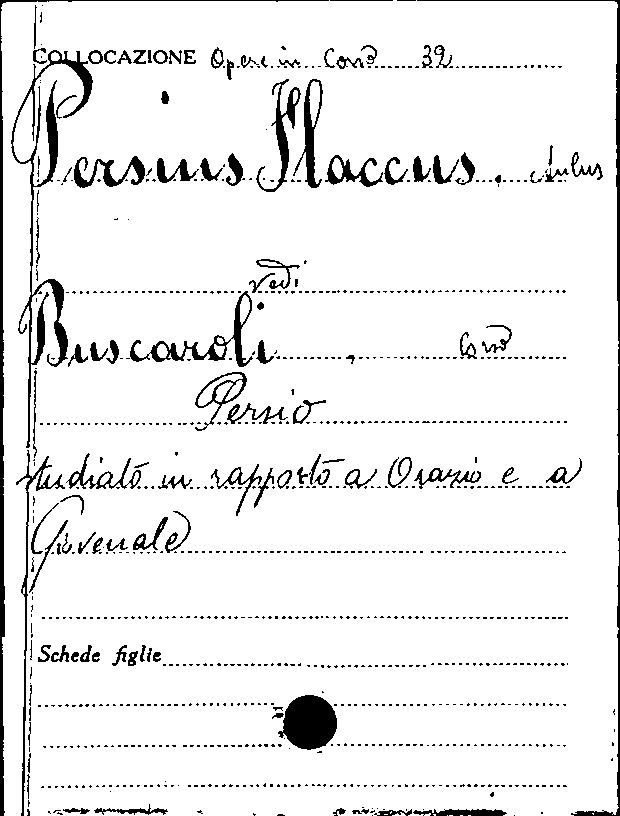 COLLOCAZIONE Opere in Corso 39
Persius Flaccus, Aulus
vedi
Buscaroli, Corso
Persio
studiato in rapporto a Orazio e a
Giovenale
Schede figlie